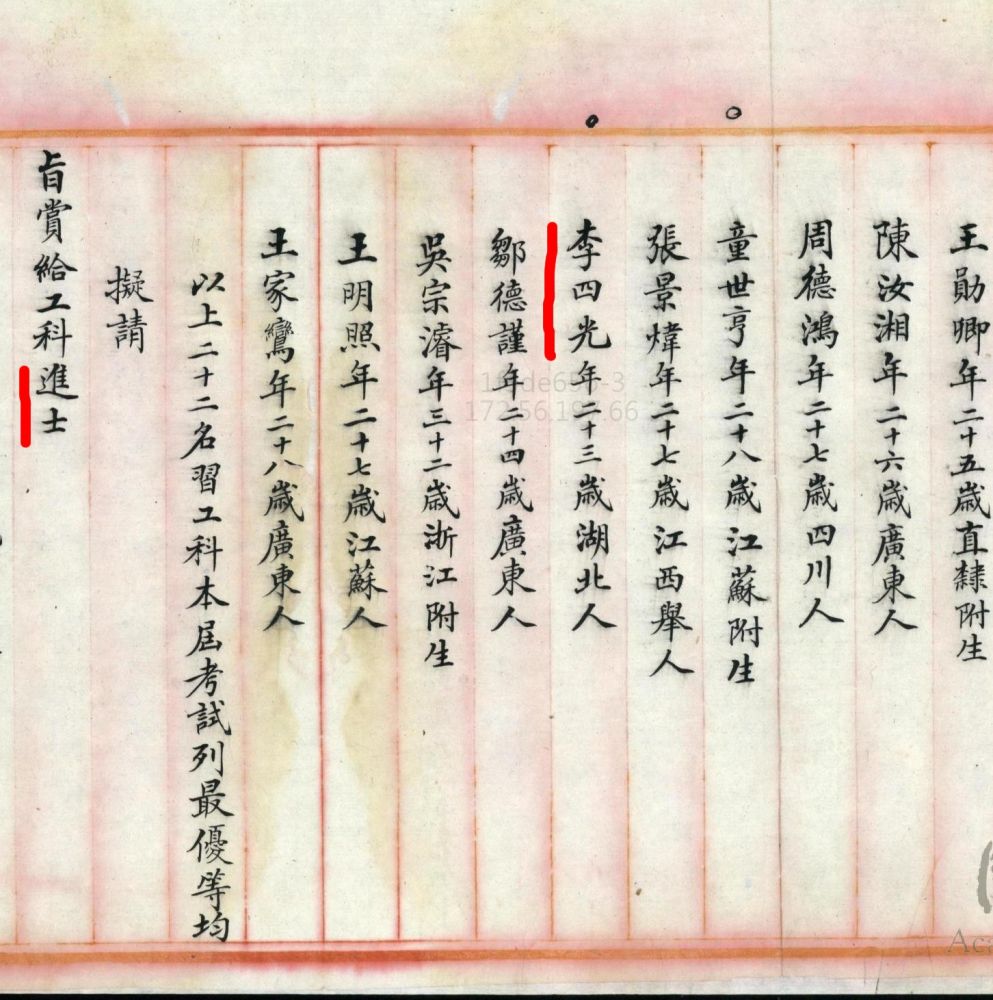 王勛卿年二十五歲直隸附生
陳汝湘年二十六歲廣東人
周德鴻年二十七歲四川人
童世亨年二十八歲江蘇附生
張景煒年二十七歲江西舉人
李四光年二十三歲湖北人
鄒德謹年二十四歲廣東人
吳宗濬年三十二歲浙江附生
王明照年二十七歲江蘇人
王家鸞年二十八歲廣東人
以上二十二名習工科本屆考試列最優等均
擬請
旨賞給工科進士